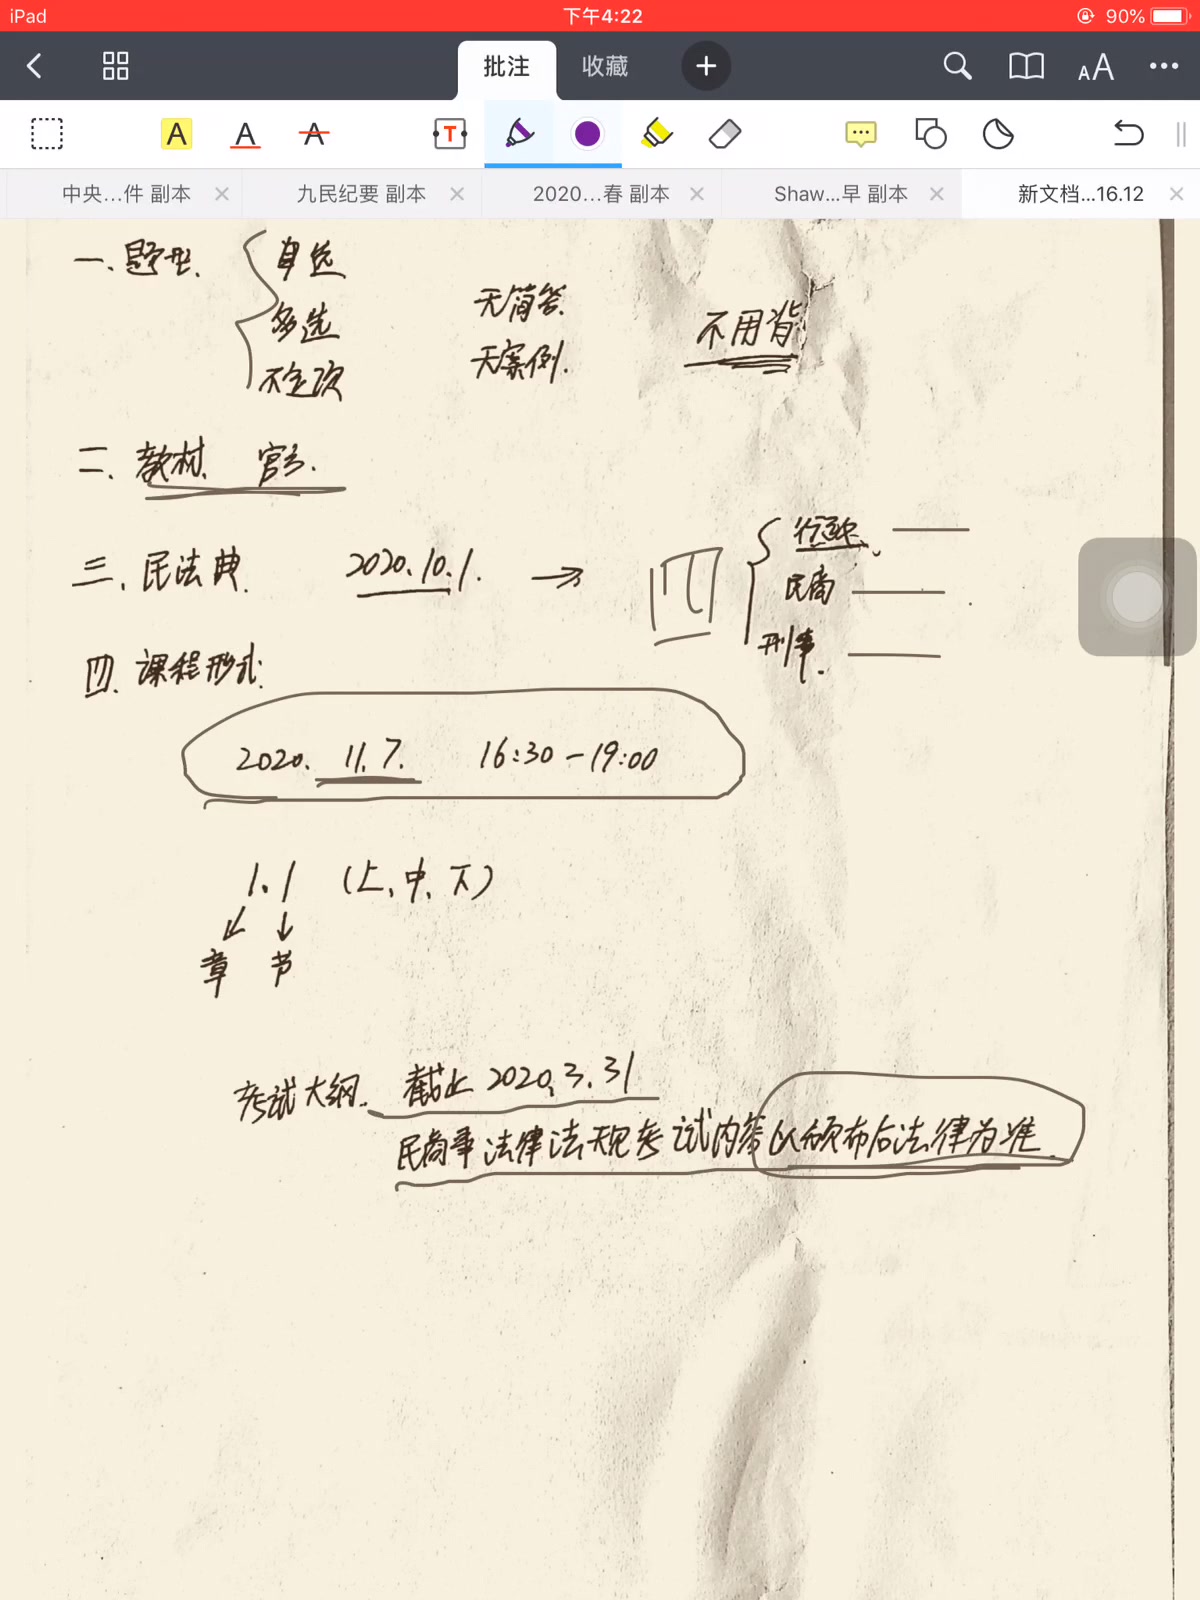 iPad 下午4:22 90%
批注 收藏
A A A T AA
中央...件 副本 九民纪要 副本 2020...春 副本 Shaw...早 副本 新文档...16.12
一、题型、 单选
多选
不定项
无简答、
无案例.
不用背
二、教材、官方.
三、民法典. 2020.10.1. → 四
民商
刑事.
四、课程形式:
2020. 11.7. 16:30-19:00
1.1 (上、中、下)
章 节
考试大纲. 截止2020.3.31
民商事法律法规考试内容以颁布后法律为准.